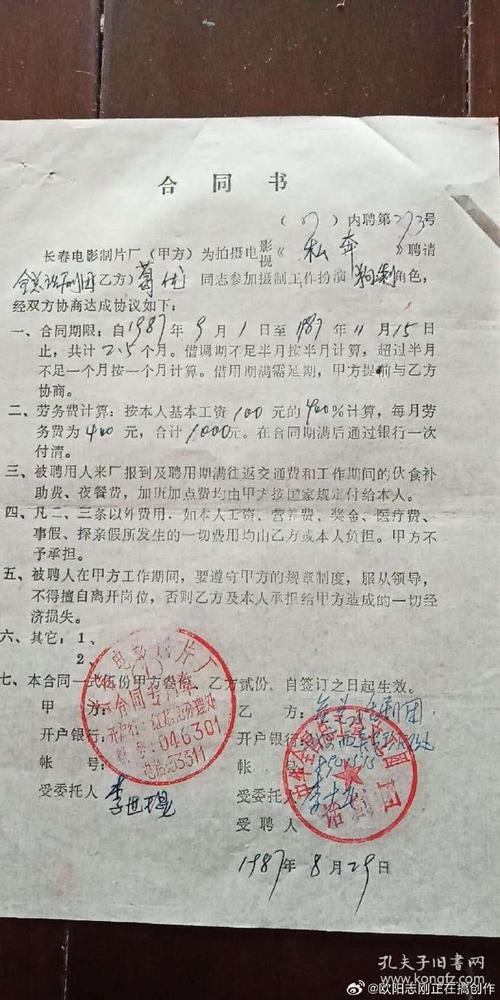 合同书
(87)内聘第273号
长春电影制片厂(甲方)为拍摄电影视《私奔》聘请
全总话剧团(乙方)葛优同志参加摄制工作扮演角色,
经双方协商达成协议如下:
一、合同期限:自1987年9月1日至1987年11月15日
止,共计2.5个月。借调期不足半月按半月计算,超过半月
不足一个月按一个月计算。借用期满需延期,甲方提前与乙方
协商。
二、劳务费计算:按本人基本工资100元的400%计算,每月劳
务费为400元,合计1000元。在合同期满后通过银行一次
付清。
三、被聘用人来厂报到及聘用期满往返交通费和工作期间的伙食补
助费、夜餐费,加班加点费均由甲方按国家规定付给本人。
四、凡二、三条以外费用,如本人工资、营养费、奖金、医疗费、
事假、探亲假所发生的一切费用均由乙方或本人负担。甲方不
予承担。
五、被聘人在甲方工作期间,要遵守甲方的规章制度,服从领导,
不得擅自离开岗位,否则乙方及本人承担给甲方造成的一切经
济损失。
六、其它:1、
2、
七、本合同一式伍份甲方叁份,乙方贰份,自签订之日起生效。
甲方:
乙方:全总话剧团
开户银行:
开户银行:
帐号:
帐号:
受委托人 李世
受委托人 李
受聘人
1987年8月29日
电影制片厂
合同专用章
开户行:红旗街分理处
帐号:046301
电话:53311
中华全国总工会
话剧团
孔夫子旧书网
kongfz.com
@欧阳志刚正在搞创作